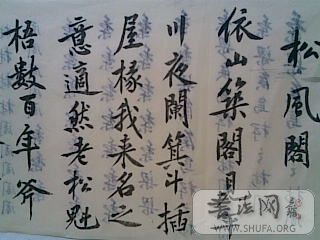 松風閣
依山築閣見
川夜闌箕斗插
屋椽我来名之
意適然老松魁
梧數百年斧
書法网
WWW.SHUFA.ORG